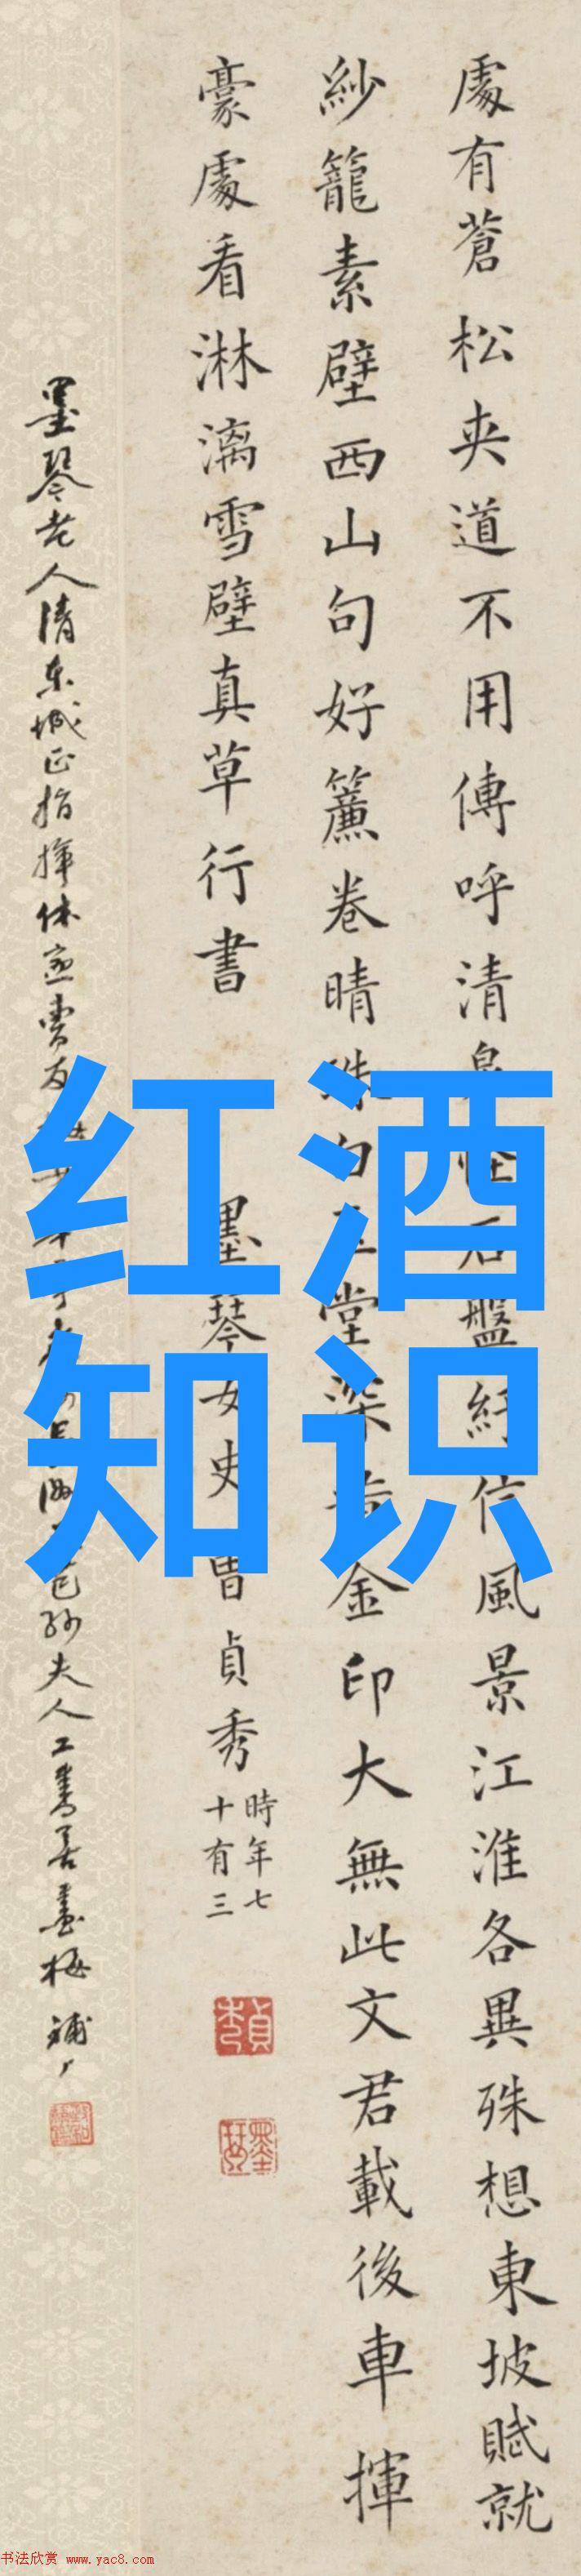 處有蒼松夾道不用傳呼清泉怪石盤紆信風景江淮各異殊想東坡賦就
紗籠素壁西山句好簾卷晴珠白玉堂深黃金印大無此文君載後車揮
豪處看淋漓雪壁真草行書
墨琴女史曹貞秀
時年七
十有三
墨琴老人清東城正指揮
夫人工書善畫梅
红酒
知识
书法欣赏 www.yac8.com